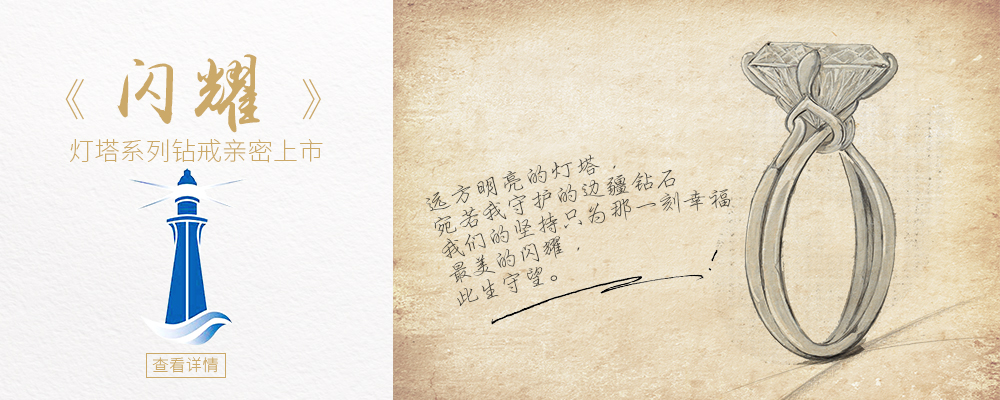 《闪耀》
灯塔系列钻戒亲密上市
查看详情
远方明亮的灯塔，
宛若我守护的边疆钻石
我们的坚持只为那一刻幸福
最美的闪耀，
此生守望。
！